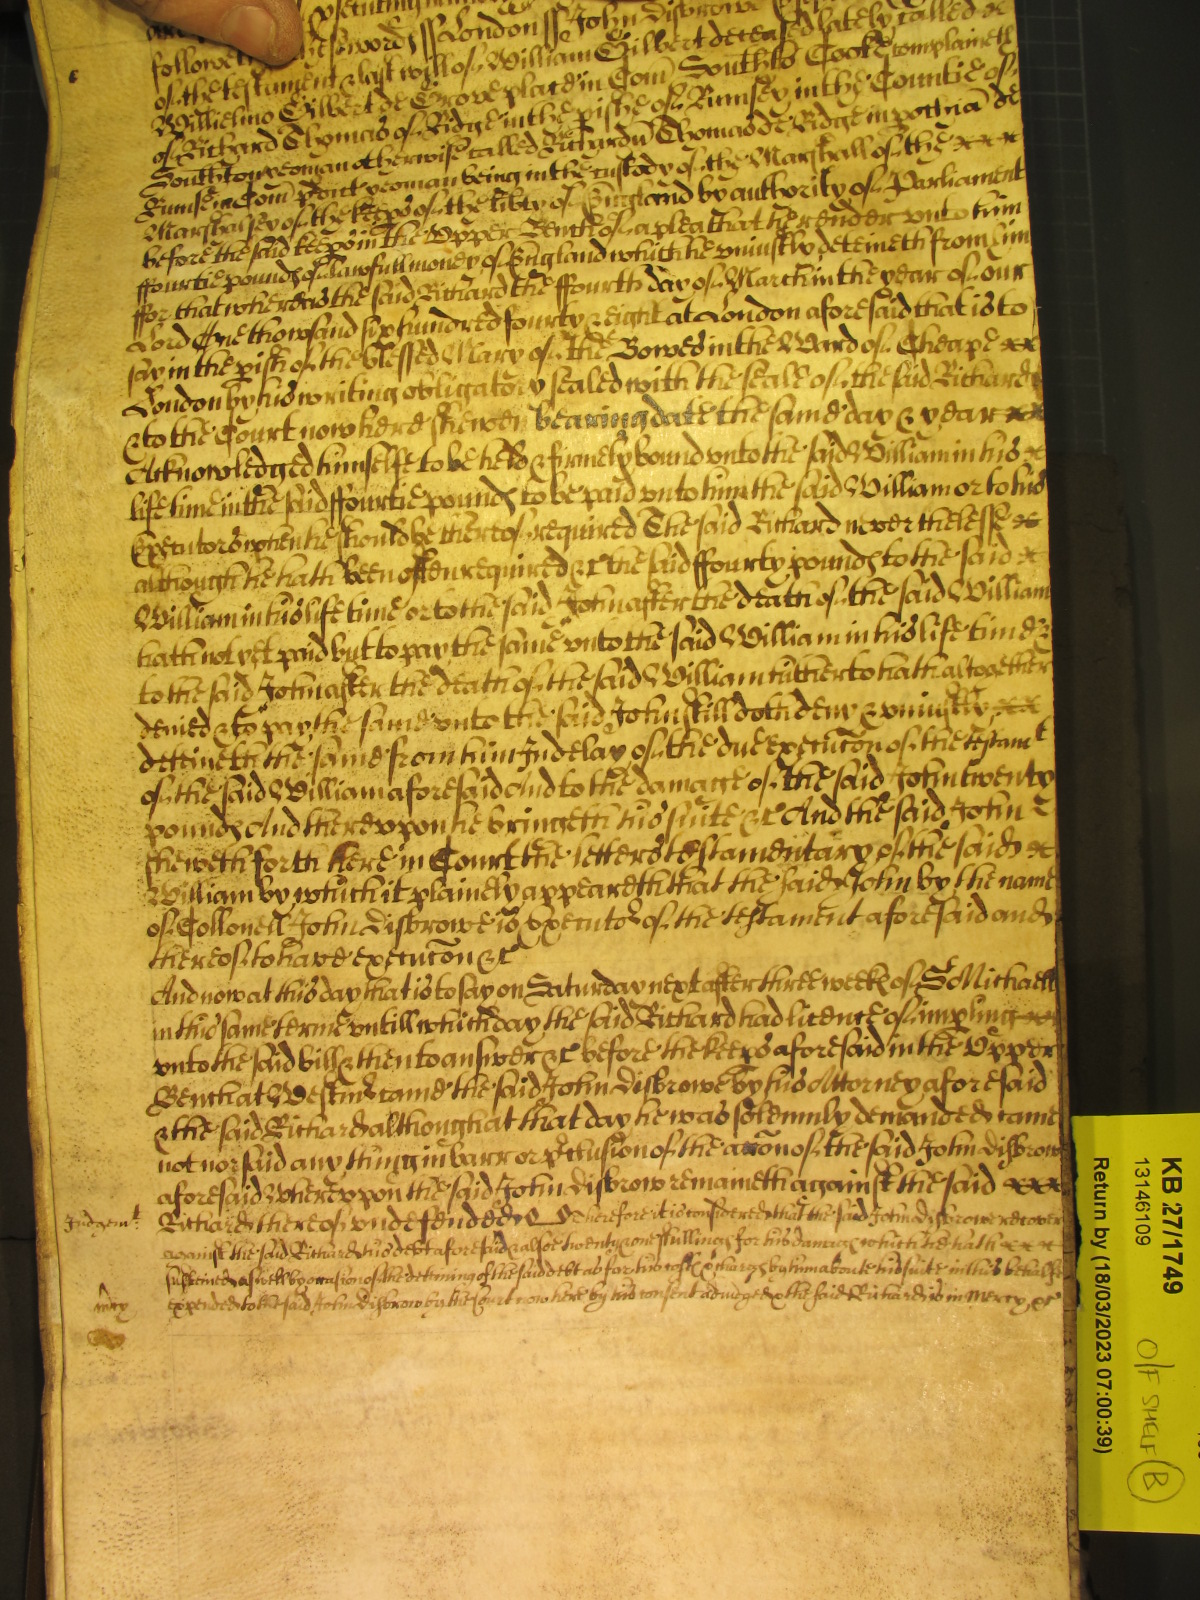 prosecuting
followeth in these words ss London ss John Disbrowe
of the testament & last will of William Gilbert deceased lately called &c
Willielmo Gilbert de Grove place in Com̄ Southto Cooke complaineth
of Richard Thomas of Ridge in the pishe of Rumsey in the Countie of
Southton yeoman otherwise called Richardū Thomas de Ridge in pochia de
Rumsey in Com̄ p̄dict yeoman being in the custody of the Marshall of the
Marshalsey of the keeps of the libty of England by authority of Parliament
before the said keeps in the Upper Bench of a plea that he render unto him
ffourtie pounds of lawfull money of England which he uniustly deteineth from him
ffor that whereas the said Richard the ffourth day of March in the year of our
Lord One thowsand six hundred fourty & eight at London aforesaid that is to
say in the pish of the blessed Mary of the Bowes in the Ward of Cheape
London by his writing obligatory sealed with the seale of the said Richard
& to the Court now here shewen bearing date the same day & year
Acknowledged himselfe to be held & firmely bound unto the said William in his
life time in the said ffourtie pounds to be paid unto him the said William or to his
Executors when he should be thereof required The said Richard never thelesse
although he hath been often required &c the said ffourty pounds to the said
William in his life time or to the said John after the death of the said William
hath not yet paid but to pay the same unto the said William in his life time &
to the said John after the death of the said William hitherto hath altogether
denied & to pay the same unto the said John still doth deny & uniustly
deteineth the same from him In delay of the due execucōn of the testamt
of the said William aforesaid And to the damage of the said John twenty
pounds And thereuppon he bringeth his suite &c And the said John
sheweth forth here in Court the letters testamentary of the said
William by which it plainely appeareth that the said John by the name
of Collonell John Disbrowe is Executor of the testament aforesaid and
thereof to have execucōn &c
And now at this day that is to say on Saturday next after three weeks of St Michaell
in this same terme untill which day the said Richard had licence of impling
unto the said bill & then to answer &c before the keeps aforesaid in the Upper
Bench at Westmr came the said John Disbrowe by his Attorney aforesaid
& the said Richard although at that day he was solemnly demanded came
not nor said any thing in barr or p̄clusion of the accōn of the said John Disbrow
aforesaid Whereuppon the said John Disbrow remaineth against the said
Judgemt
Richard thereof undefended &c Therefore it is considered that the said John Disbrowe recover
against the said Richard his debt aforesaid & alsoe twenty & one shillings for his damags which he hath
susteined aswell by occasion of the deteining of the said debt as for his costs & charges by him about his suite in this behalfe
mrcy
expended to the said John Disbrow by the Court now here by his consent adiudged & the said Richard is in mercy &c
KB 27/1749
13146109
Return by (18/03/2023 07:00:39)
O/F SHELF B